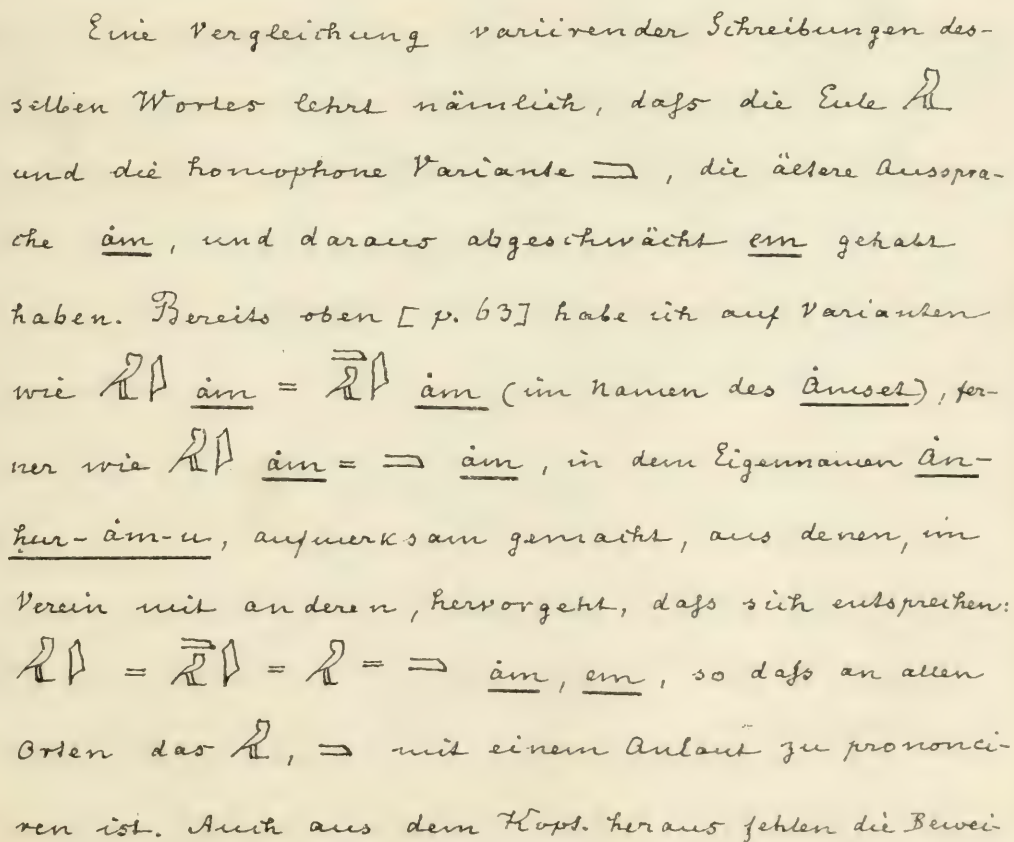 Eine Vergleichung variirender Schreibungen des-
selben Wortes lehrt nämlich, daſs die Eule 𓅓
und die homophone Variante 𓐝, die ältere Ausspra-
che ȧm, und daraus abgeschwächt em gehabt
haben. Bereits oben [p. 63] habe ich auf Varianten
wie 𓅓𓇋 ȧm = 𓐝𓅓𓇋 ȧm (im Namen des Ȧmset), fer-
ner wie 𓅓𓇋 ȧm = 𓐝 ȧm, in dem Eigennamen Ȧn-
ḥur-ȧm-u, aufmerksam gemacht, aus denen, im
Verein mit anderen, hervorgeht, daſs sich entsprechen:
𓅓𓇋 = 𓐝𓅓𓇋 = 𓅓 = 𓐝 ȧm, em, so daſs an allen
Orten das 𓅓, 𓐝 mit einem Anlaut zu prononci-
ren ist. Auch aus dem Kopt. heraus fehlen die Bewei-